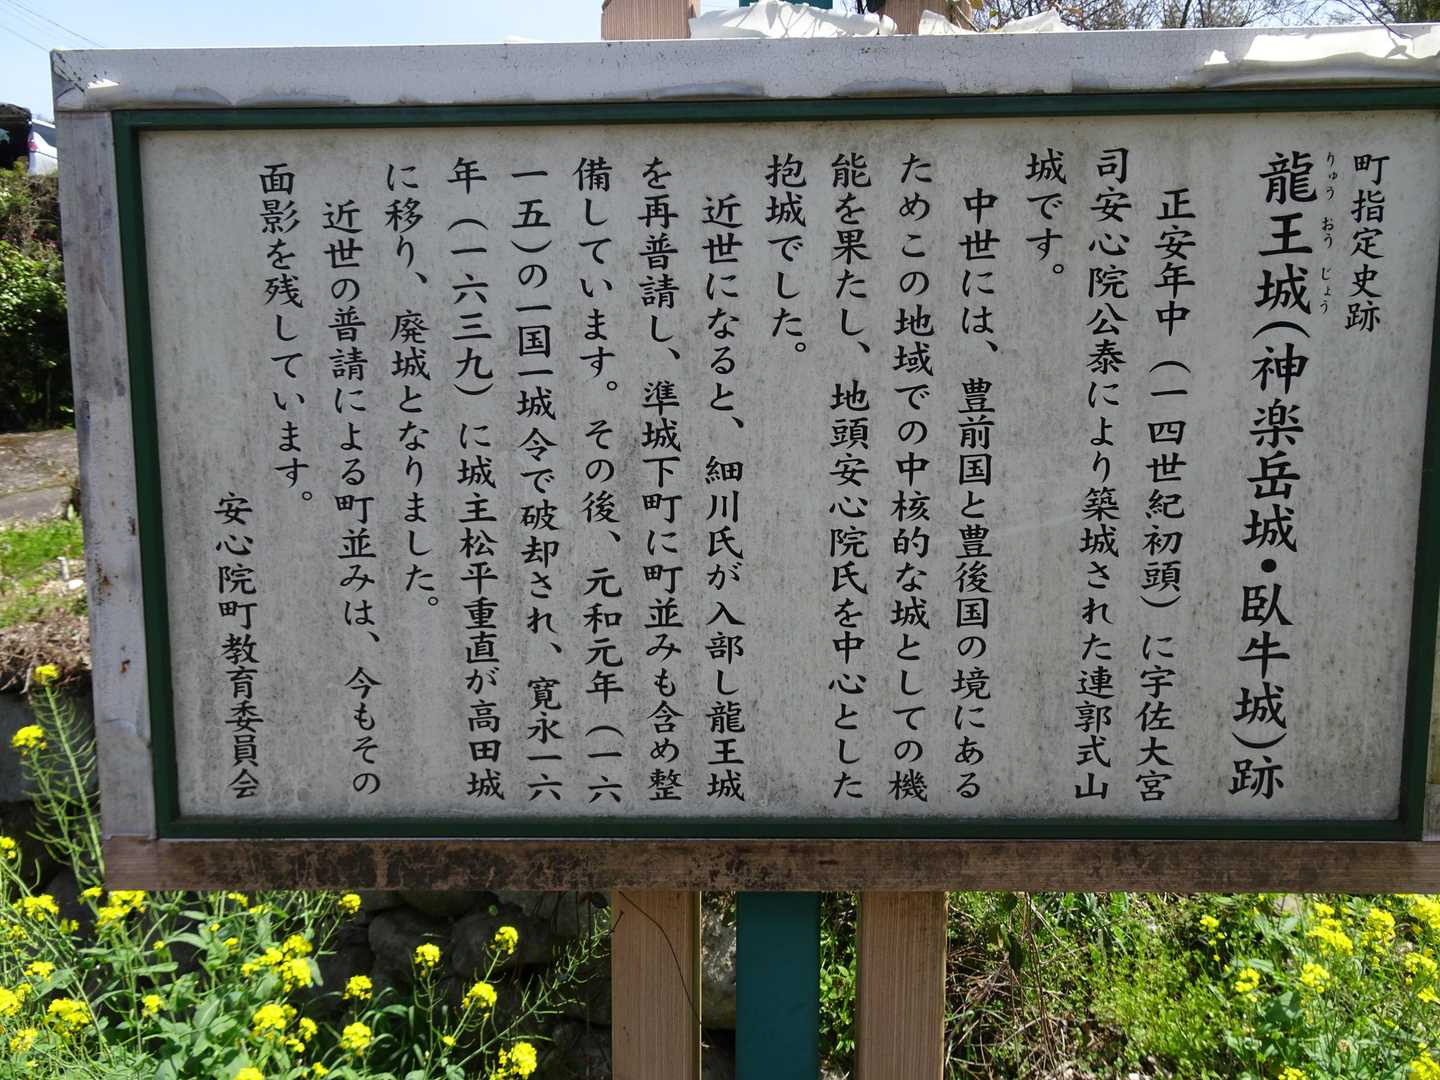 町指定史跡
りゅうおうじょう
龍王城(神楽岳城・臥牛城)跡
正安年中(一四世紀初頭)に宇佐大宮
司安心院公泰により築城された連郭式山
城です。
中世には、豊前国と豊後国の境にある
ためこの地域での中核的な城としての機
能を果たし、地頭安心院氏を中心とした
抱城でした。
近世になると、細川氏が入部し龍王城
を再普請し、準城下町に町並みも含め整
備しています。その後、元和元年(一六
一五)の一国一城令で破却され、寛永一六
年(一六三九)に城主松平重直が高田城
に移り、廃城となりました。
近世の普請による町並みは、今もその
面影を残しています。
安心院町教育委員会